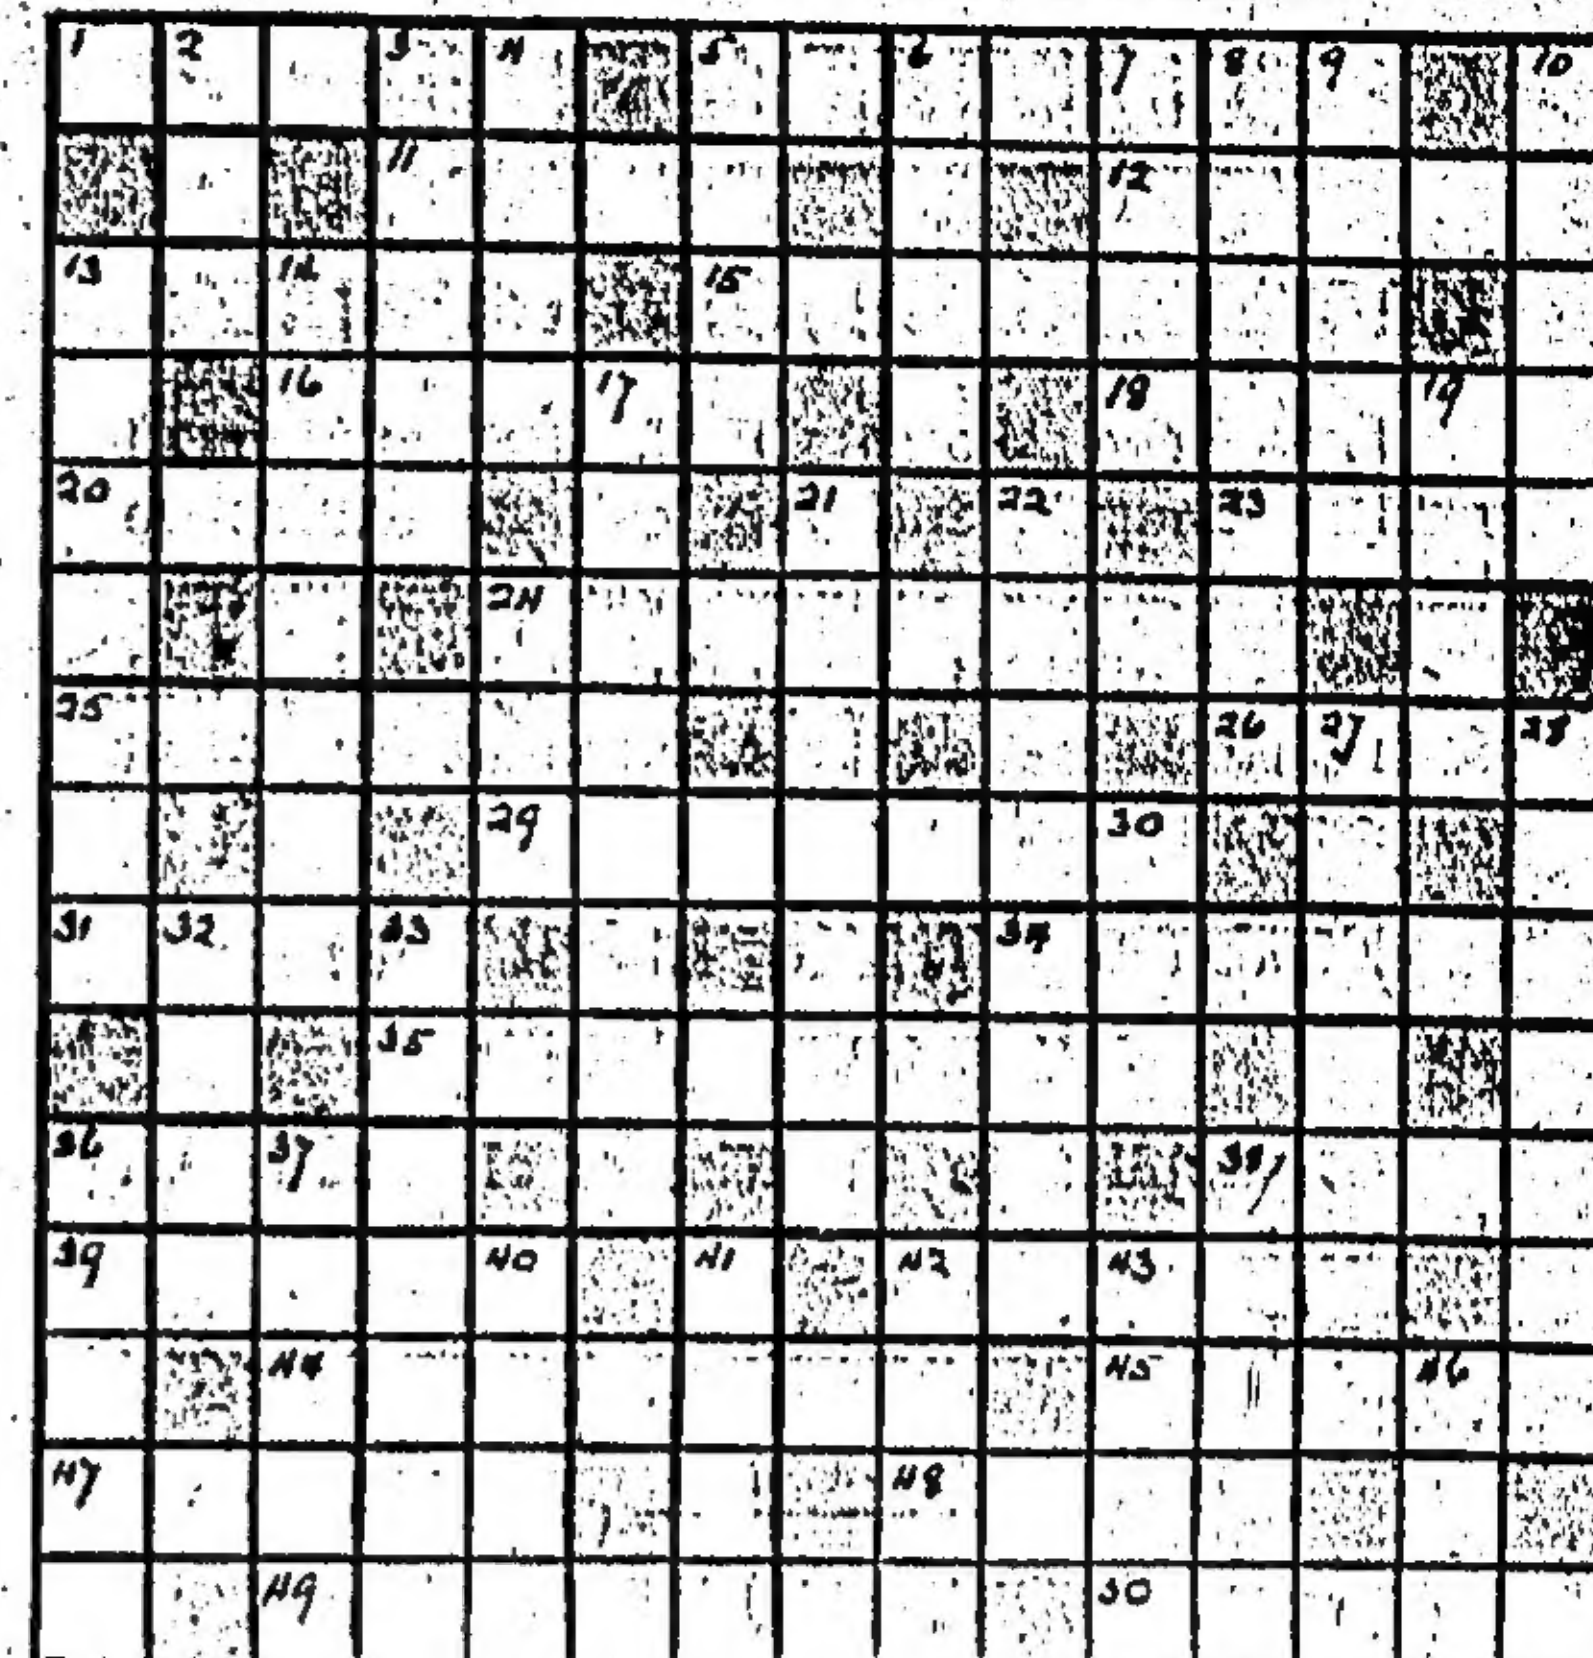 1 2 3 4 5 6 7 8 9 10
11 12
13 14 15
16 17 18 19
20 21 22 23
24
25 26 27 28
29 30
31 32 33 34
35
36 37 38
39 40 41 42 43
44 45 46
47 48
49 50